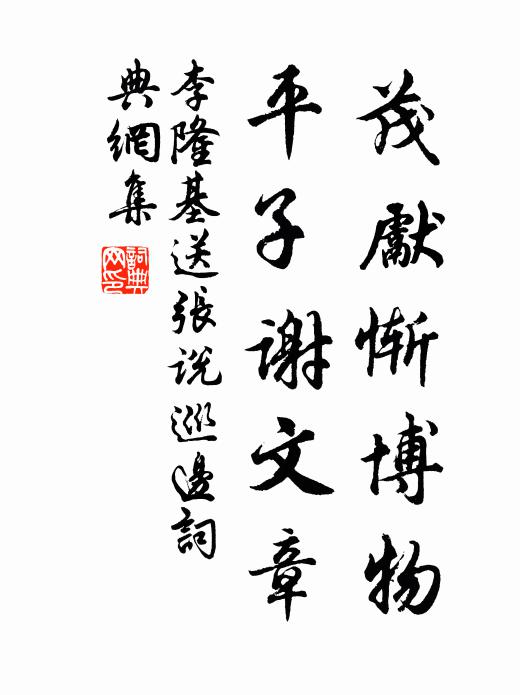 茂獻慚博物
平子謝文章
李隆基送張說巡邊詞
典網集
詞典
网印